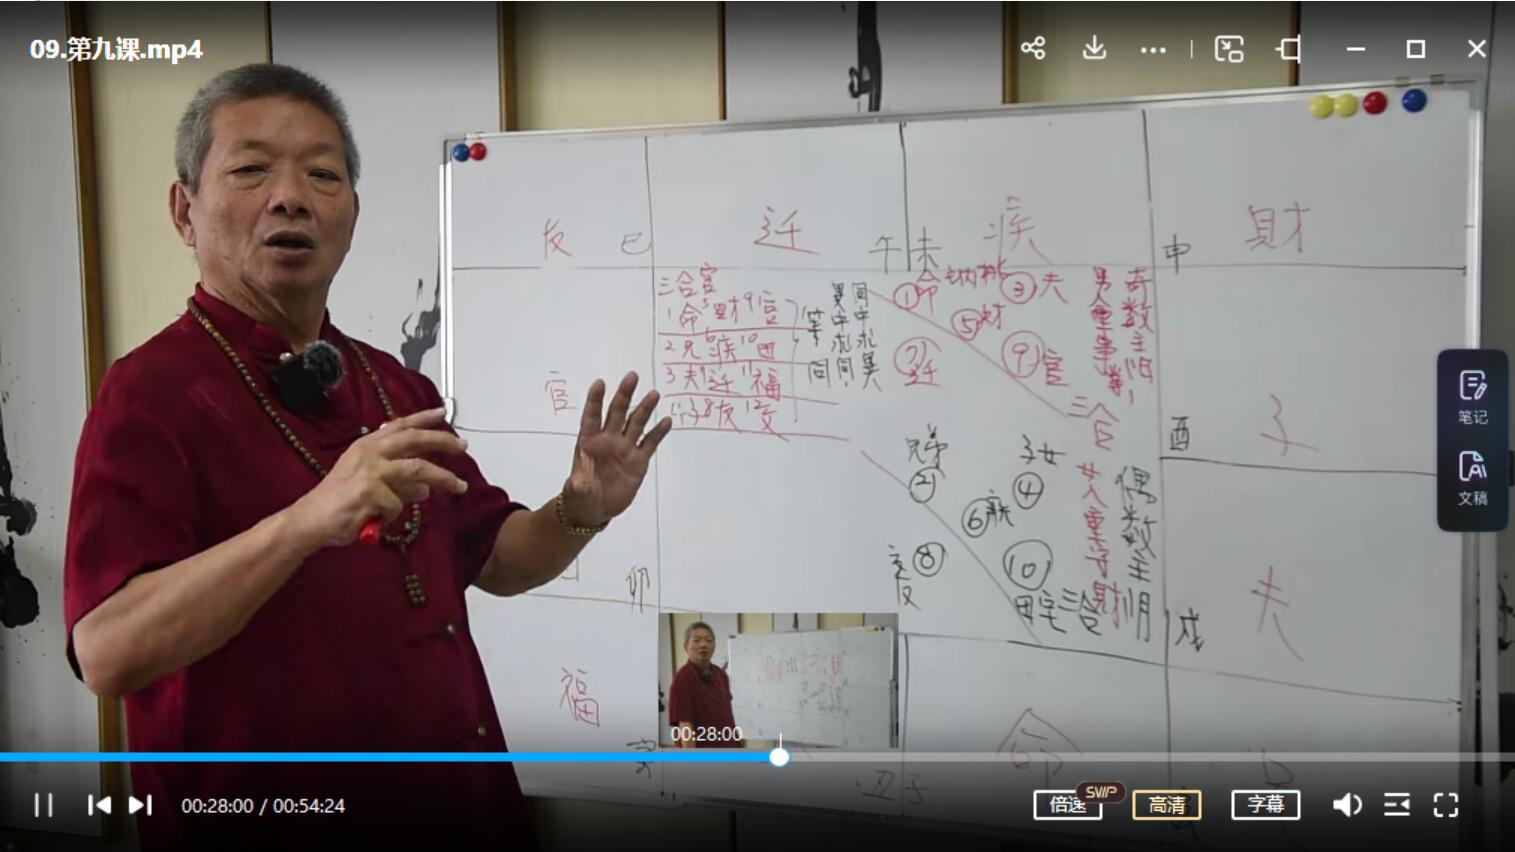 09.第九课.mp4
友 巳
迁
午 未
疾
申
财
三合官
1命 5财 9官
2兄 6疾 10田
3夫 7迁 11福
4子 8友 12父
等同
异中求同
同中求异
①命
③夫
⑤财
⑦迁
⑨官
三合
奇数主阳
男人重事業
官
酉
子
兄弟
②
子女
④
⑥疾
⑧
友
⑩
田宅三合
偶数主阴
女人重子财
卯
戌
夫
福
寅
丑 子
命
笔记
文稿
00:28:00
00:28:00 / 00:54:24
倍速
SVIP
高清
字幕